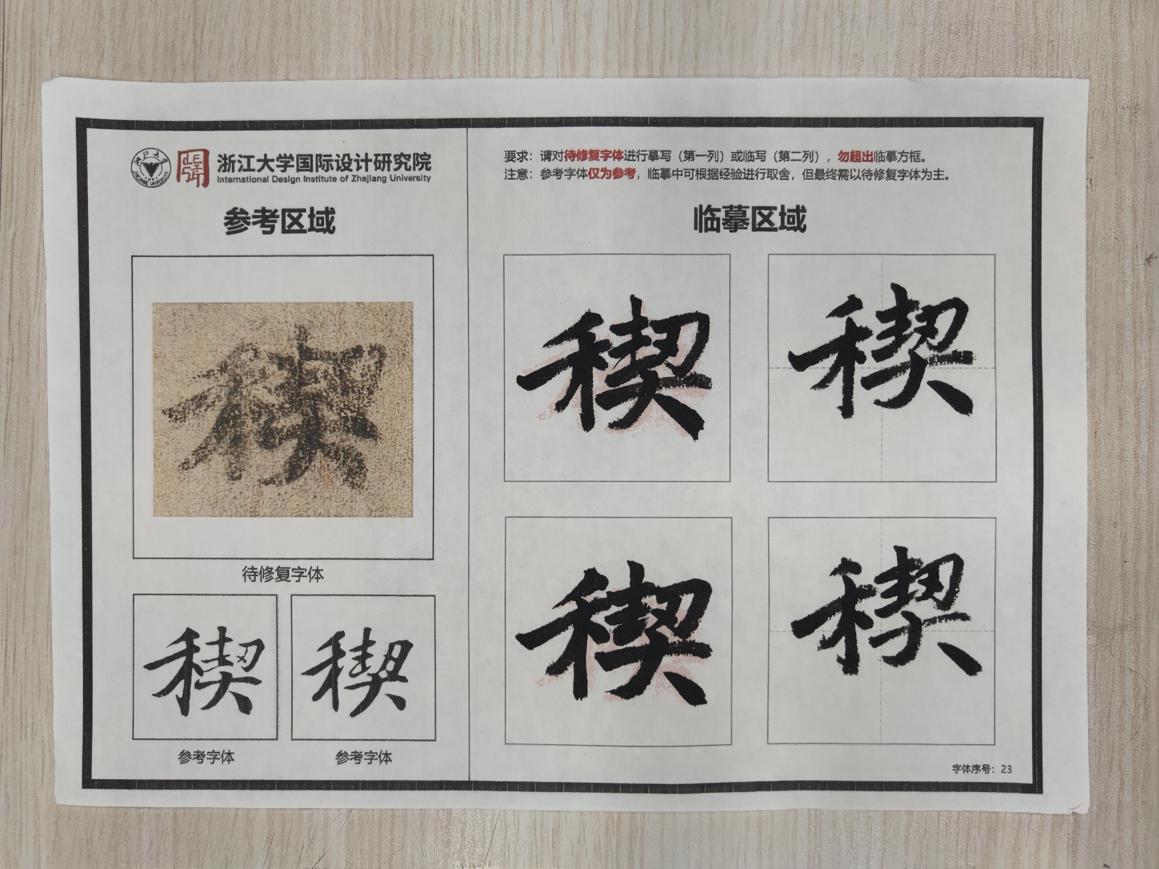 浙江大学国际设计研究院
International Design Institute of Zhejiang University
参考区域
稧
待修复字体
稧
稧
参考字体
参考字体
要求：请对待修复字体进行摹写（第一列）或临写（第二列），勿超出临摹方框。
注意：参考字体仅为参考，临摹中可根据经验进行取舍，但最终需以待修复字体为主。
临摹区域
稧
稧
稧
稧
字体序号：23